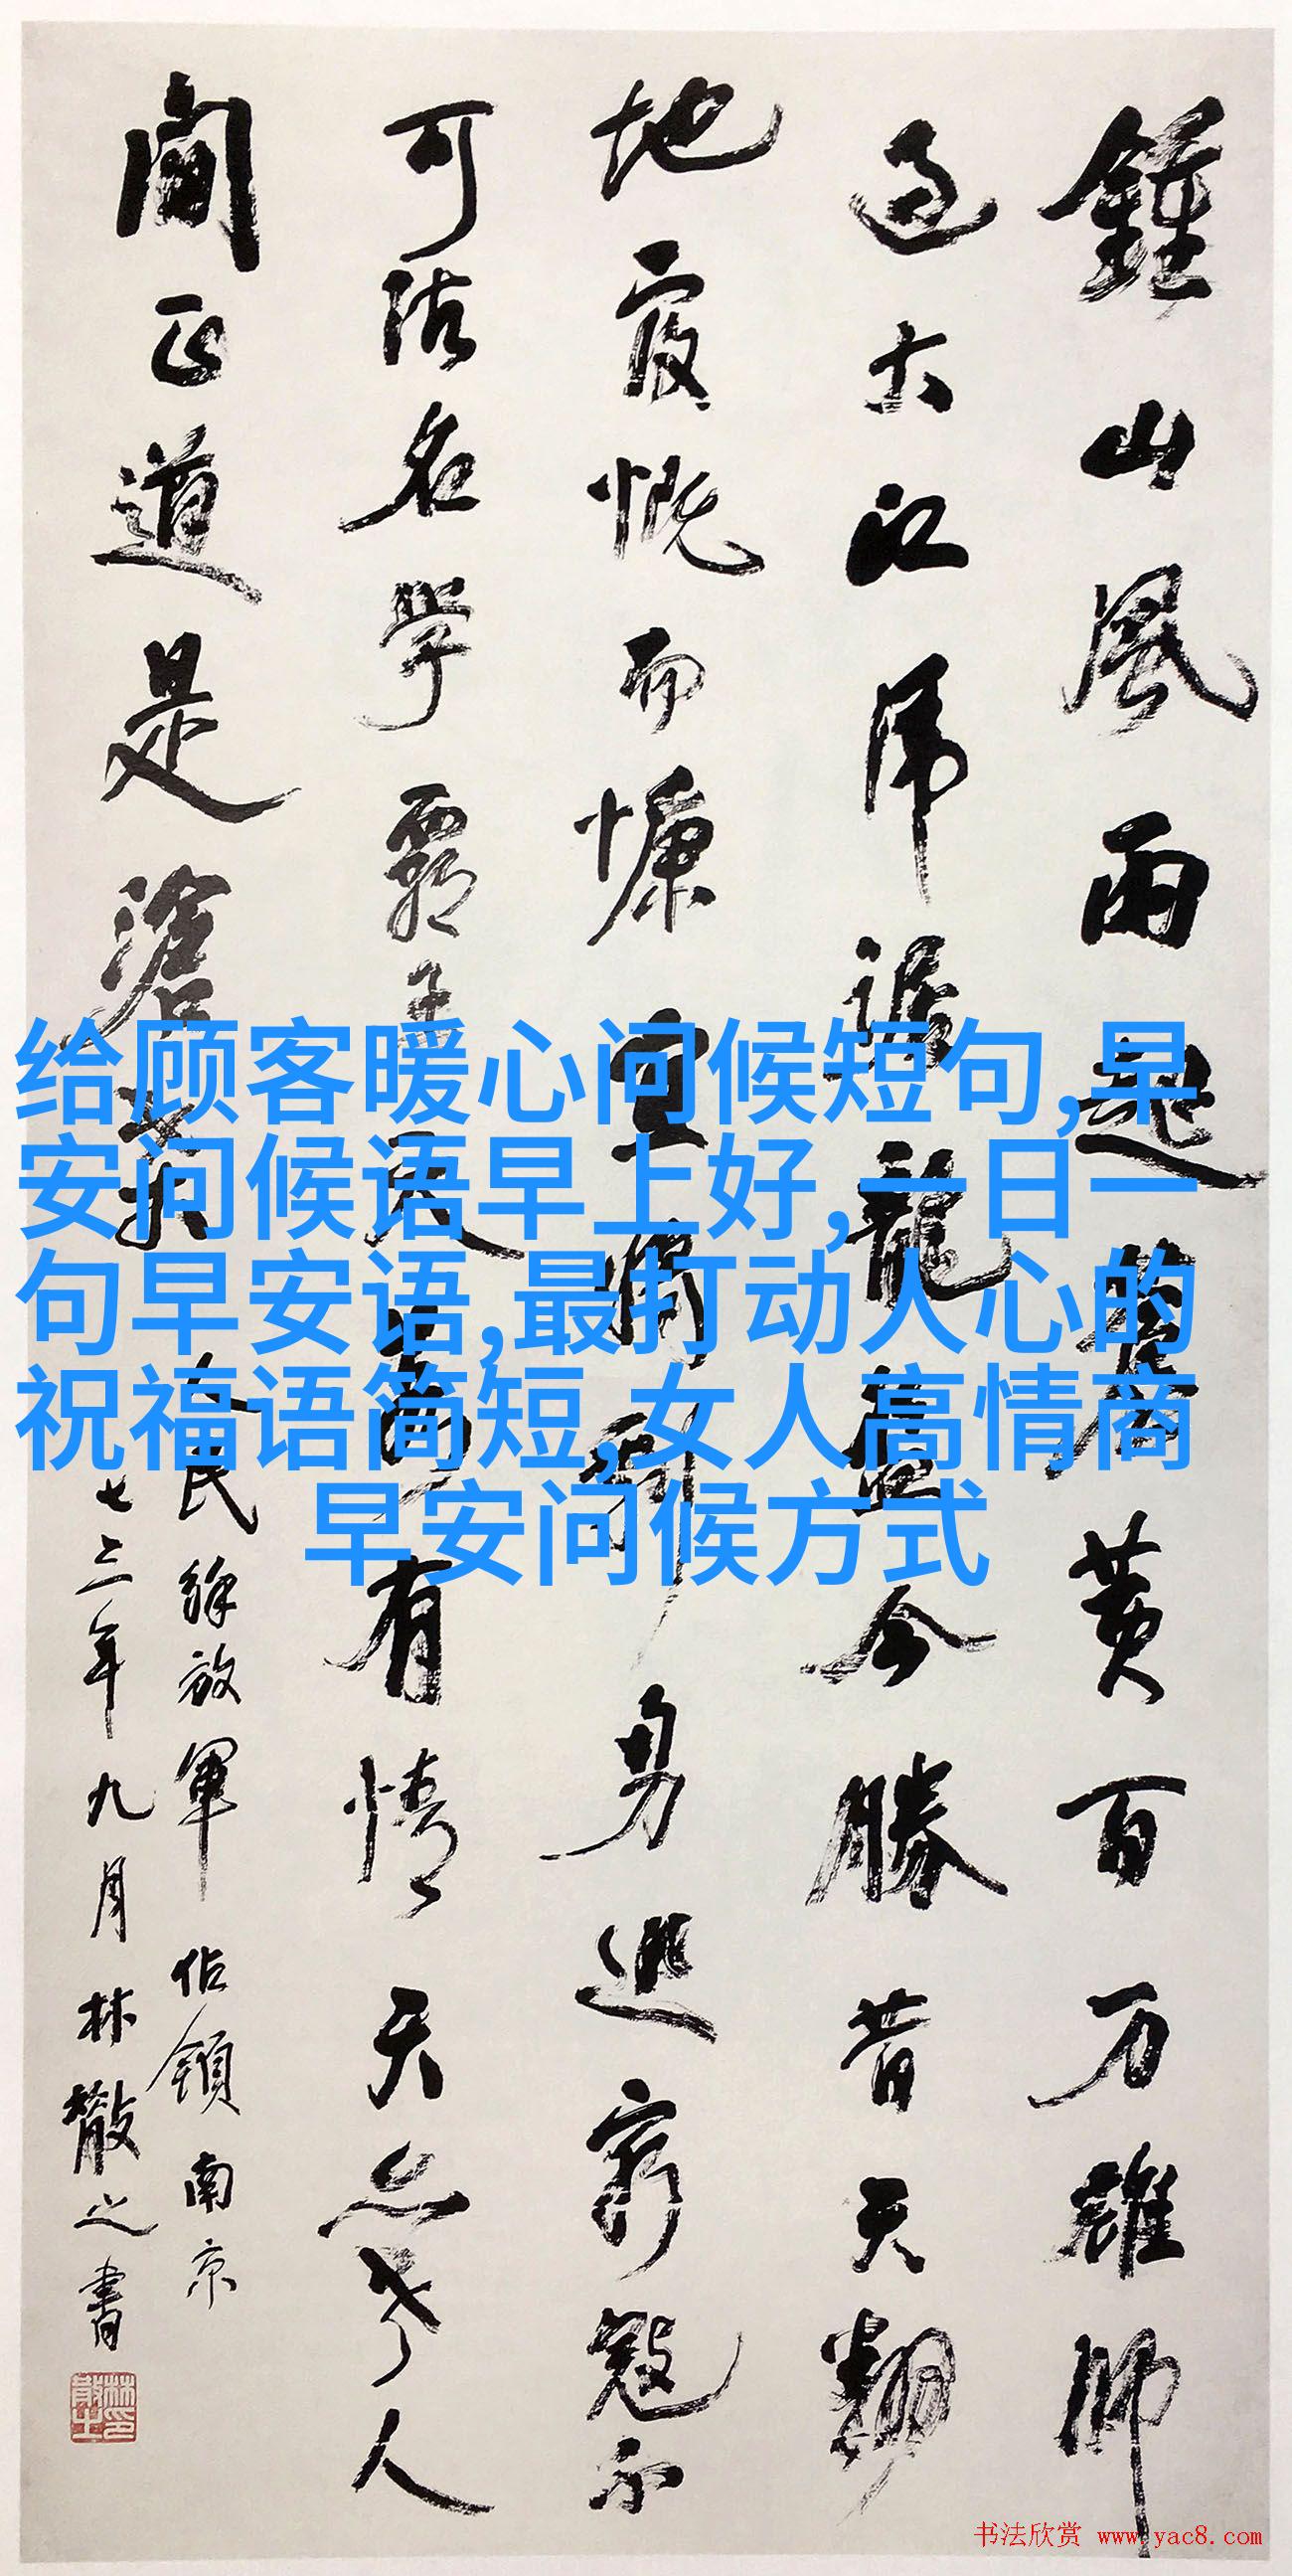 鍾山風雨起蒼黃百万雄師
過大江虎踞龍盤今勝昔天翻
地覆慨而慷宜將剩勇追窮寇不
可沽名學霸王天若有情天亦老人
間正道是滄桑
人民解放軍佔領南京
七三年九月林散之書
林散之印
给顾客暖心问候短句,早
安问候语早上好,一日一
句早安语,最打动人心的
祝福语简短,女人高情商
早安问候方式
书法欣赏 www.yac8.com